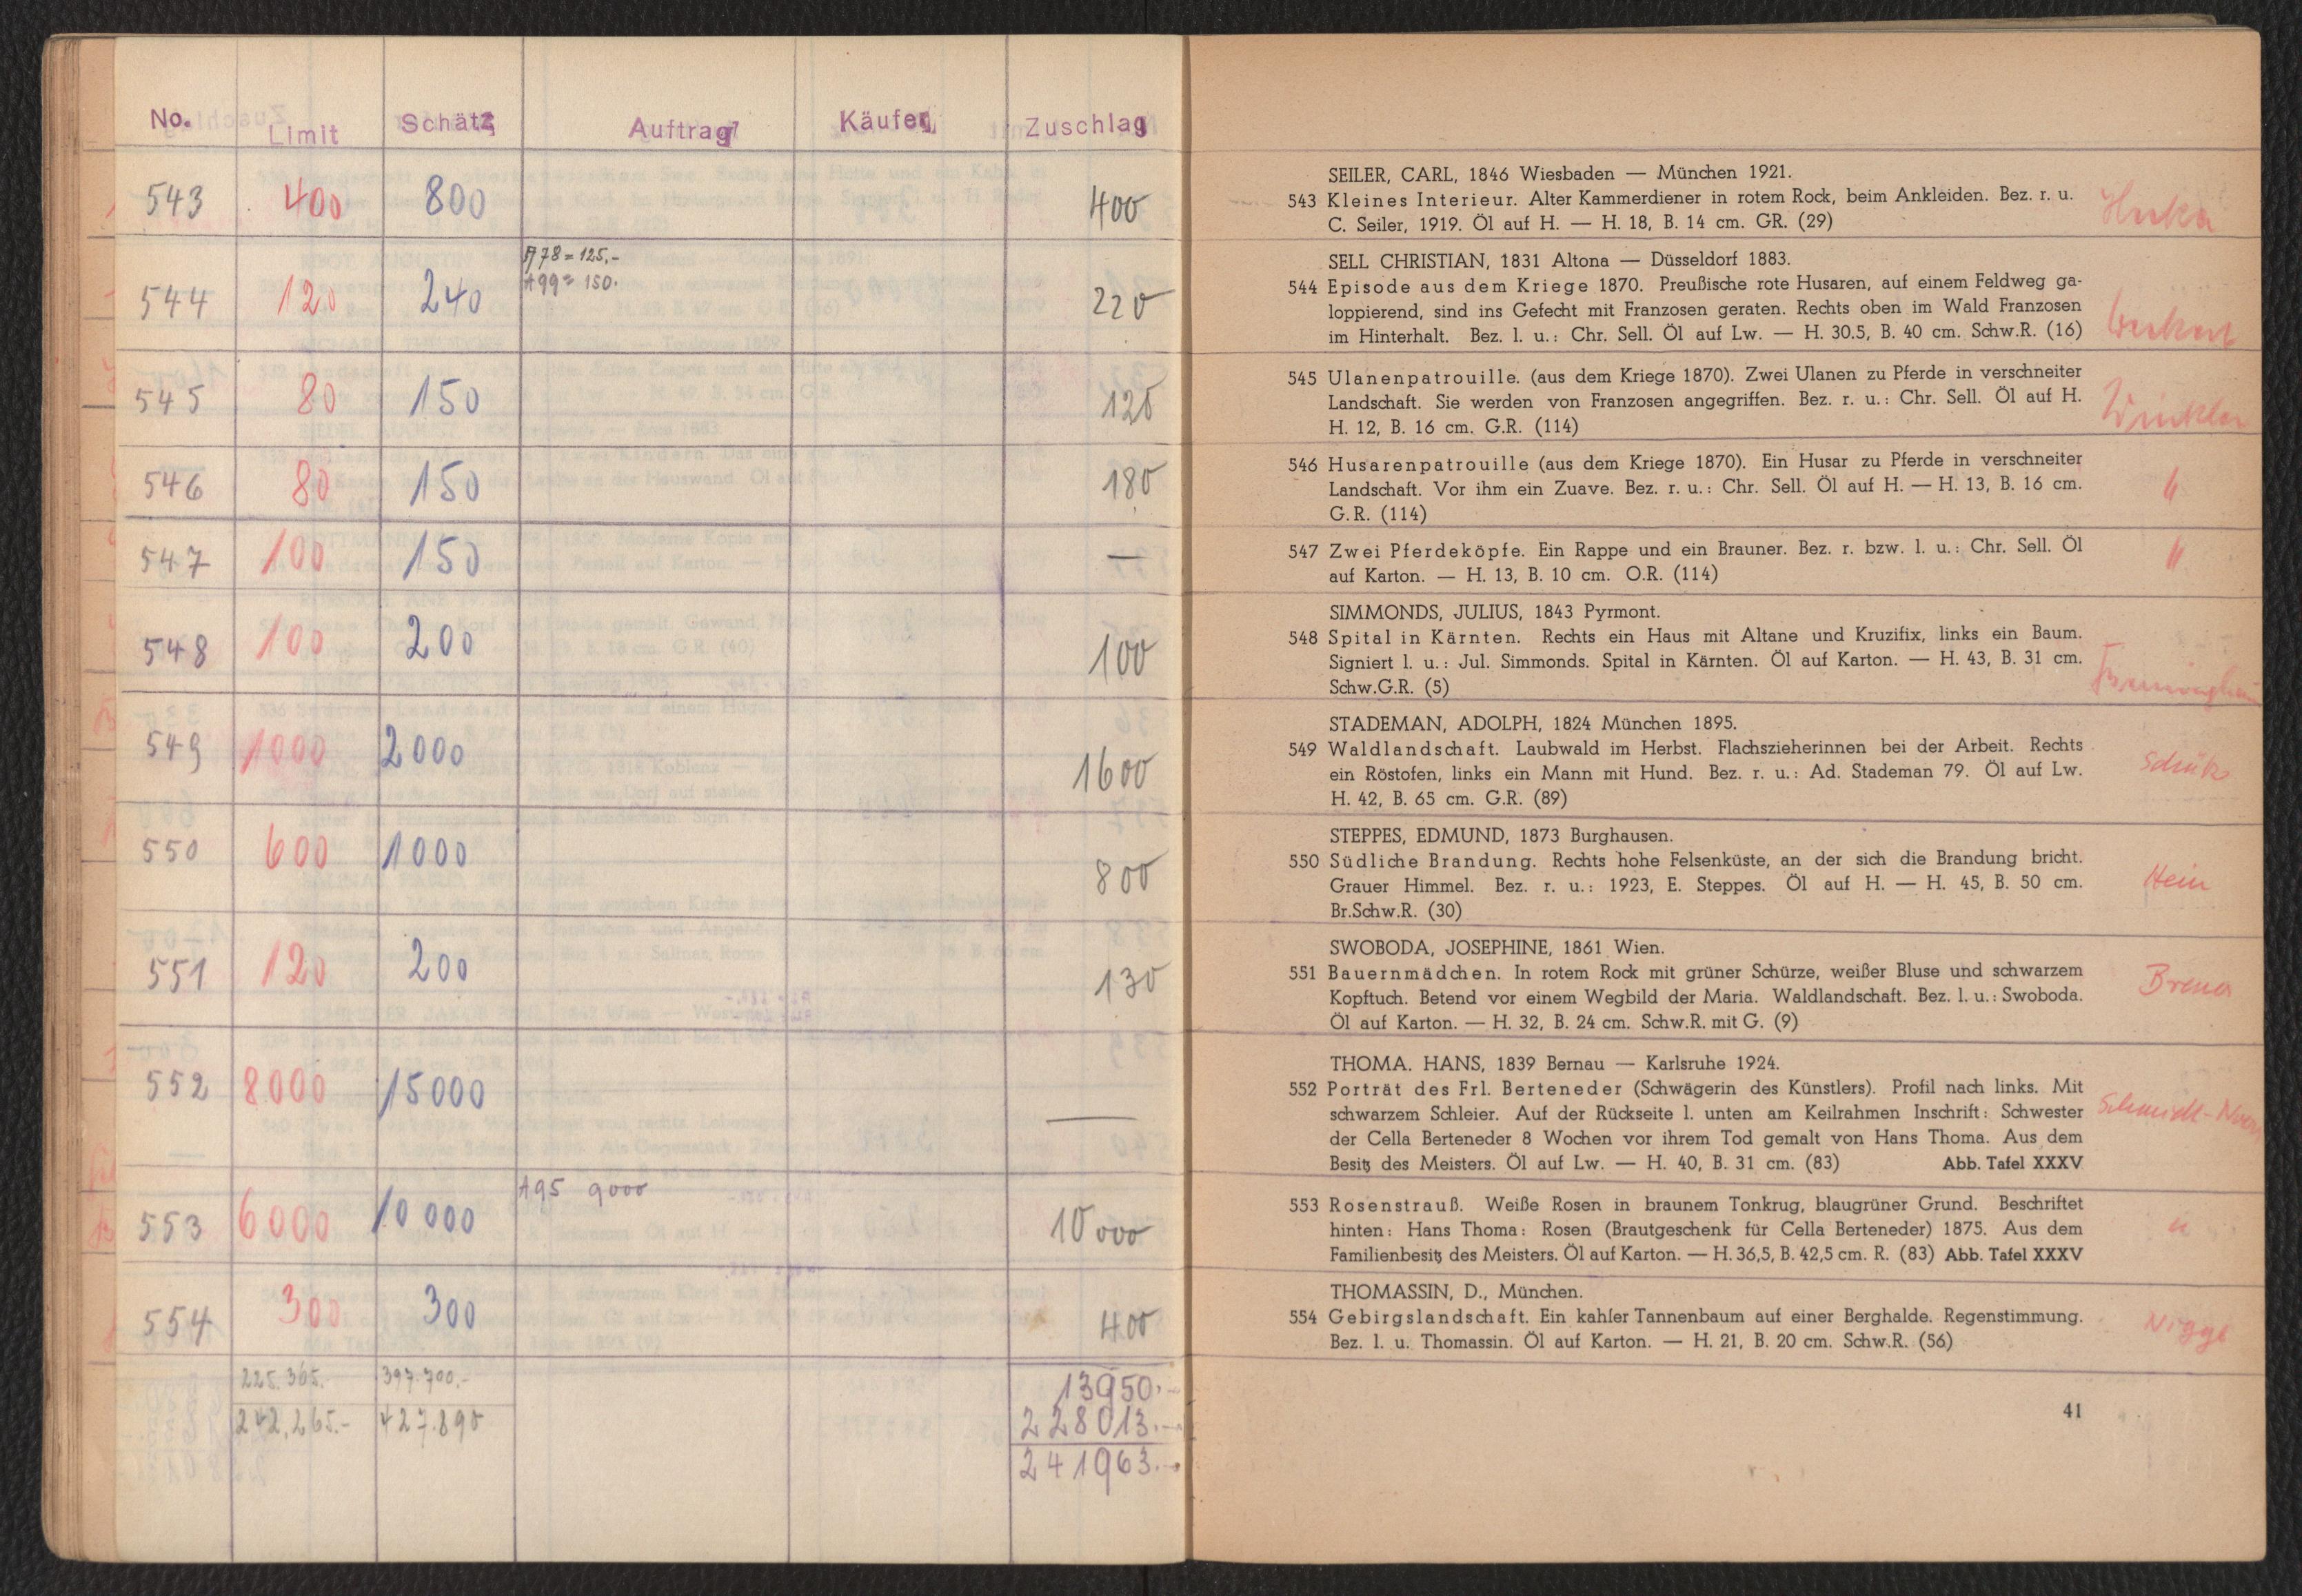 No. Limit Schätz Auftrag Käufer Zuschlag
543 400 800 400
A 78 = 125,-
A 99 = 150.
544 120 240 220
545 80 150 120
546 80 150 180
547 100 150 —
548 100 200 100
549 1000 2000 1600
550 600 1000 800
551 120 200 130
552 8000 15000 —
A 95 9000
553 6000 10 000 10 000
554 300 300 400
225.365.- 397.700.- 13950.-
242,265.- 427.890 228013.-
241963.-
SEILER, CARL, 1846 Wiesbaden — München 1921.
543 Kleines Interieur. Alter Kammerdiener in rotem Rock, beim Ankleiden. Bez. r. u.
C. Seiler, 1919. Öl auf H. — H. 18, B. 14 cm. GR. (29)
SELL CHRISTIAN, 1831 Altona — Düsseldorf 1883.
544 Episode aus dem Kriege 1870. Preußische rote Husaren, auf einem Feldweg ga-
loppierend, sind ins Gefecht mit Franzosen geraten. Rechts oben im Wald Franzosen
im Hinterhalt. Bez. l. u.: Chr. Sell. Öl auf Lw. — H. 30.5, B. 40 cm. Schw.R. (16)
545 Ulanenpatrouille. (aus dem Kriege 1870). Zwei Ulanen zu Pferde in verschneiter
Landschaft. Sie werden von Franzosen angegriffen. Bez. r. u.: Chr. Sell. Öl auf H.
H. 12, B. 16 cm. G.R. (114)
Winkler
546 Husarenpatrouille (aus dem Kriege 1870). Ein Husar zu Pferde in verschneiter
Landschaft. Vor ihm ein Zuave. Bez. r. u.: Chr. Sell. Öl auf H. — H. 13, B. 16 cm. "
G.R. (114)
547 Zwei Pferdeköpfe. Ein Rappe und ein Brauner. Bez. r. bzw. l. u.: Chr. Sell. Öl "
auf Karton. — H. 13, B. 10 cm. O.R. (114)
SIMMONDS, JULIUS, 1843 Pyrmont.
548 Spital in Kärnten. Rechts ein Haus mit Altane und Kruzifix, links ein Baum.
Signiert l. u.: Jul. Simmonds. Spital in Kärnten. Öl auf Karton. — H. 43, B. 31 cm.
Schw.G.R. (5)
STADEMAN, ADOLPH, 1824 München 1895.
549 Waldlandschaft. Laubwald im Herbst. Flachszieherinnen bei der Arbeit. Rechts
ein Röstofen, links ein Mann mit Hund. Bez. r. u.: Ad. Stademan 79. Öl auf Lw.
H. 42, B. 65 cm. G.R. (89)
STEPPES, EDMUND, 1873 Burghausen.
550 Südliche Brandung. Rechts hohe Felsenküste, an der sich die Brandung bricht.
Grauer Himmel. Bez. r. u.: 1923, E. Steppes. Öl auf H. — H. 45, B. 50 cm. Hein
Br.Schw.R. (30)
SWOBODA, JOSEPHINE, 1861 Wien.
551 Bauernmädchen. In rotem Rock mit grüner Schürze, weißer Bluse und schwarzem
Kopftuch. Betend vor einem Wegbild der Maria. Waldlandschaft. Bez. l. u.: Swoboda.
Öl auf Karton. — H. 32, B. 24 cm. Schw.R. mit G. (9)
THOMA. HANS, 1839 Bernau — Karlsruhe 1924.
552 Porträt des Frl. Berteneder (Schwägerin des Künstlers). Profil nach links. Mit
schwarzem Schleier. Auf der Rückseite l. unten am Keilrahmen Inschrift: Schwester
der Cella Berteneder 8 Wochen vor ihrem Tod gemalt von Hans Thoma. Aus dem
Besitz des Meisters. Öl auf Lw. — H. 40, B. 31 cm. (83) Abb. Tafel XXXV
553 Rosenstrauß. Weiße Rosen in braunem Tonkrug, blaugrüner Grund. Beschriftet
hinten: Hans Thoma: Rosen (Brautgeschenk für Cella Berteneder) 1875. Aus dem "
Familienbesitz des Meisters. Öl auf Karton. — H. 36,5, B. 42,5 cm. R. (83) Abb. Tafel XXXV
THOMASSIN, D., München.
554 Gebirgslandschaft. Ein kahler Tannenbaum auf einer Berghalde. Regenstimmung.
Bez. l. u. Thomassin. Öl auf Karton. — H. 21, B. 20 cm. Schw.R. (56)
41